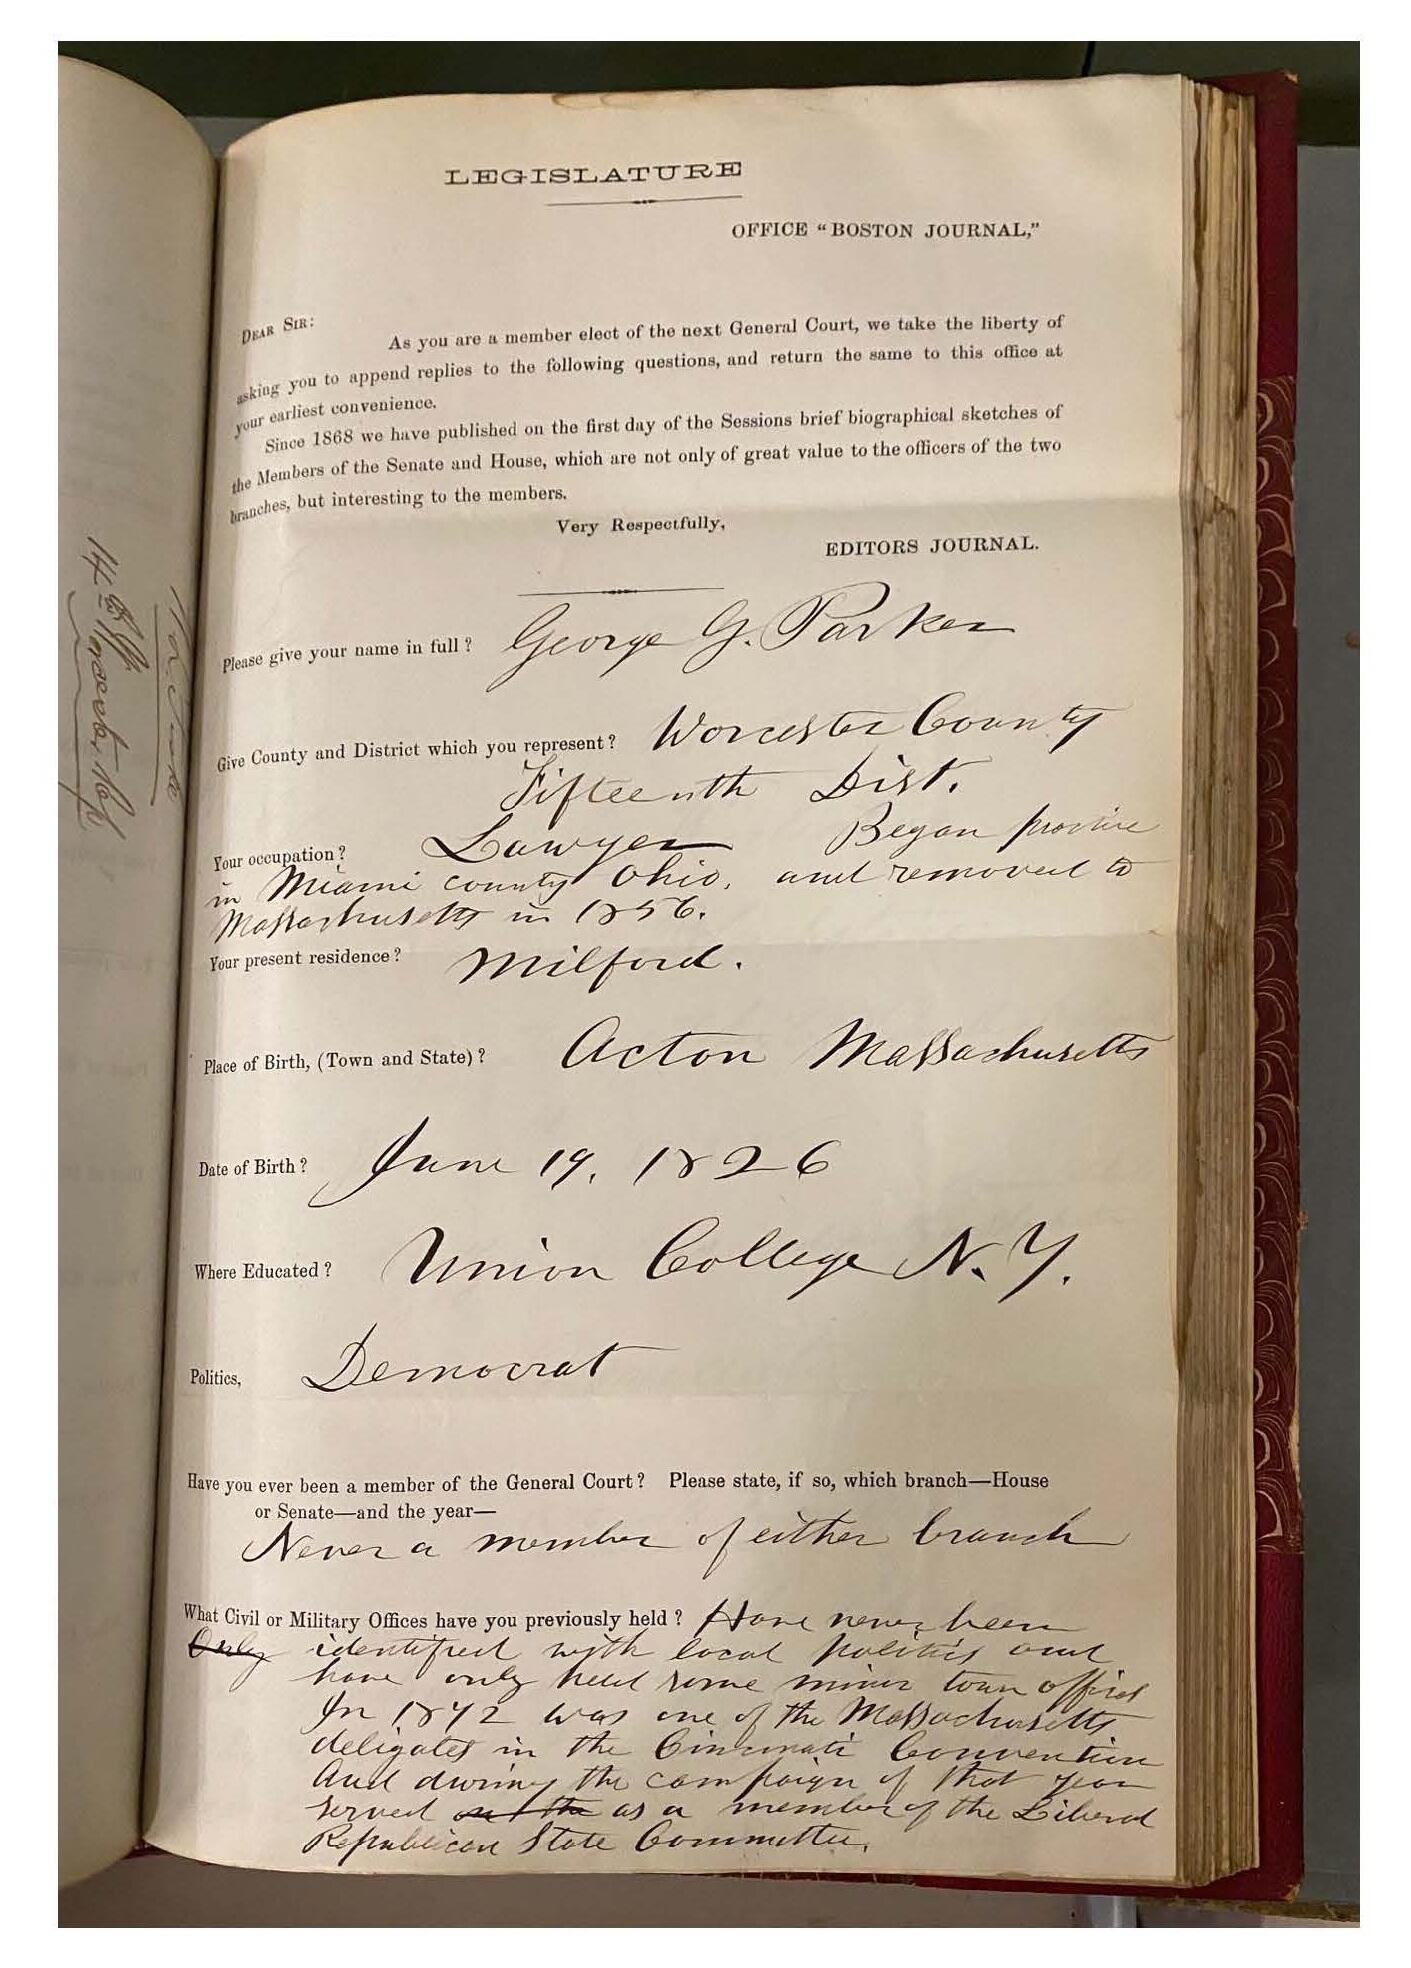 LEGISLATURE
OFFICE "BOSTON JOURNAL,"
DEAR SIR:
As you are a member elect of the next General Court, we take the liberty of
asking you to append replies to the following questions, and return the same to this office at
your earliest convenience.
Since 1868 we have published on the first day of the Sessions brief biographical sketches of
the Members of the Senate and House, which are not only of great value to the officers of the two
branches, but interesting to the members.
Very Respectfully,
EDITORS JOURNAL.
Please give your name in full? George G. Parker
Give County and District which you represent? Worcester County
Fifteenth Dist.
Your occupation? Lawyer Began practice
in Miami county Ohio, and removed to
Massachusetts in 1856.
Your present residence? Milford.
Place of Birth, (Town and State)? Acton Massachusetts
Date of Birth? June 19, 1826
Where Educated? Union College N. Y.
Politics, Democrat
Have you ever been a member of the General Court? Please state, if so, which branch—House
or Senate—and the year—
Never a member of either branch
What Civil or Military Offices have you previously held? Have never been
Only identified with local politics and
have only held some minor town offices
In 1872 was one of the Massachusetts
deligates in the Cincinnati Convention
And during the campaign of that year
served as a member of the Liberal
Republican State Committee.